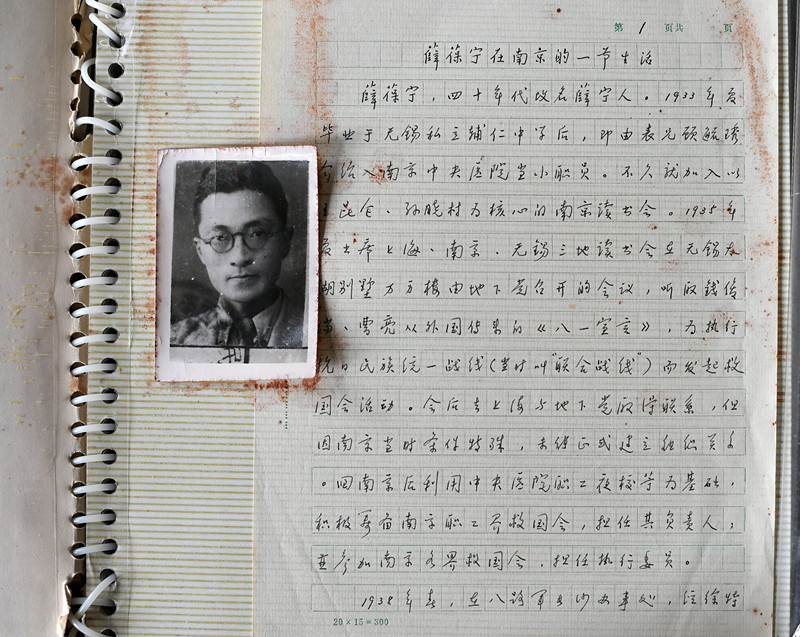 第 1 页共 页
薛葆宁在南京的一节生活
薛葆宁，四十年代改名薛宁人。1933年夏
毕业于无锡私立辅仁中学后，即由表兄顾毓琇
介绍入南京中央医院当小职员。不久就加入以
昆仑、孙晓村为核心的南京读书会。1935年
夏出席上海、南京、无锡三地读书会在无锡太
湖别墅万方楼由地下党召开的会议，听取钱俊
、曹亮从外国传来的《八一宣言》，为执行
抗日民族统一战线（当时叫“联合战线”）而发起救
国会活动。会后去上海与地下党取得联系，但
因南京当时条件特殊，未能正式建立组织关系
。回南京后利用中央医院职工夜校等为基础，
积极筹备南京职工界救国会，担任其负责人，
并参加南京各界救国会，担任执行委员。
1938年春，在八路军长沙办事处，经徐特
20×15=300